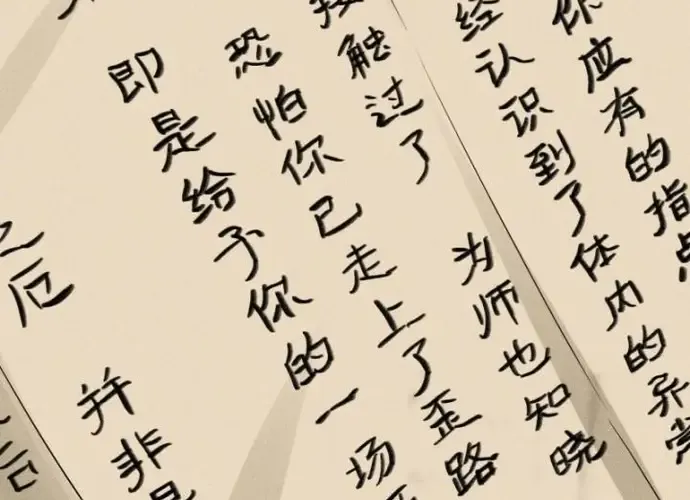 你应有的指点
经认识到了体内的异常
接触过了 为师也知晓
恐怕你已走上了歪路
即是给予你的一场
之厄 并非是